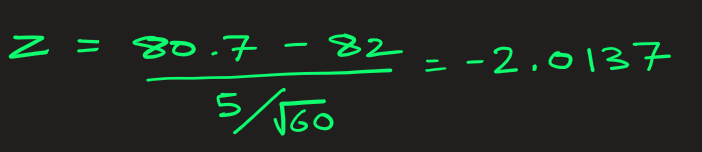 Z = (80.7 - 82)/(5/√60) = -2.0137